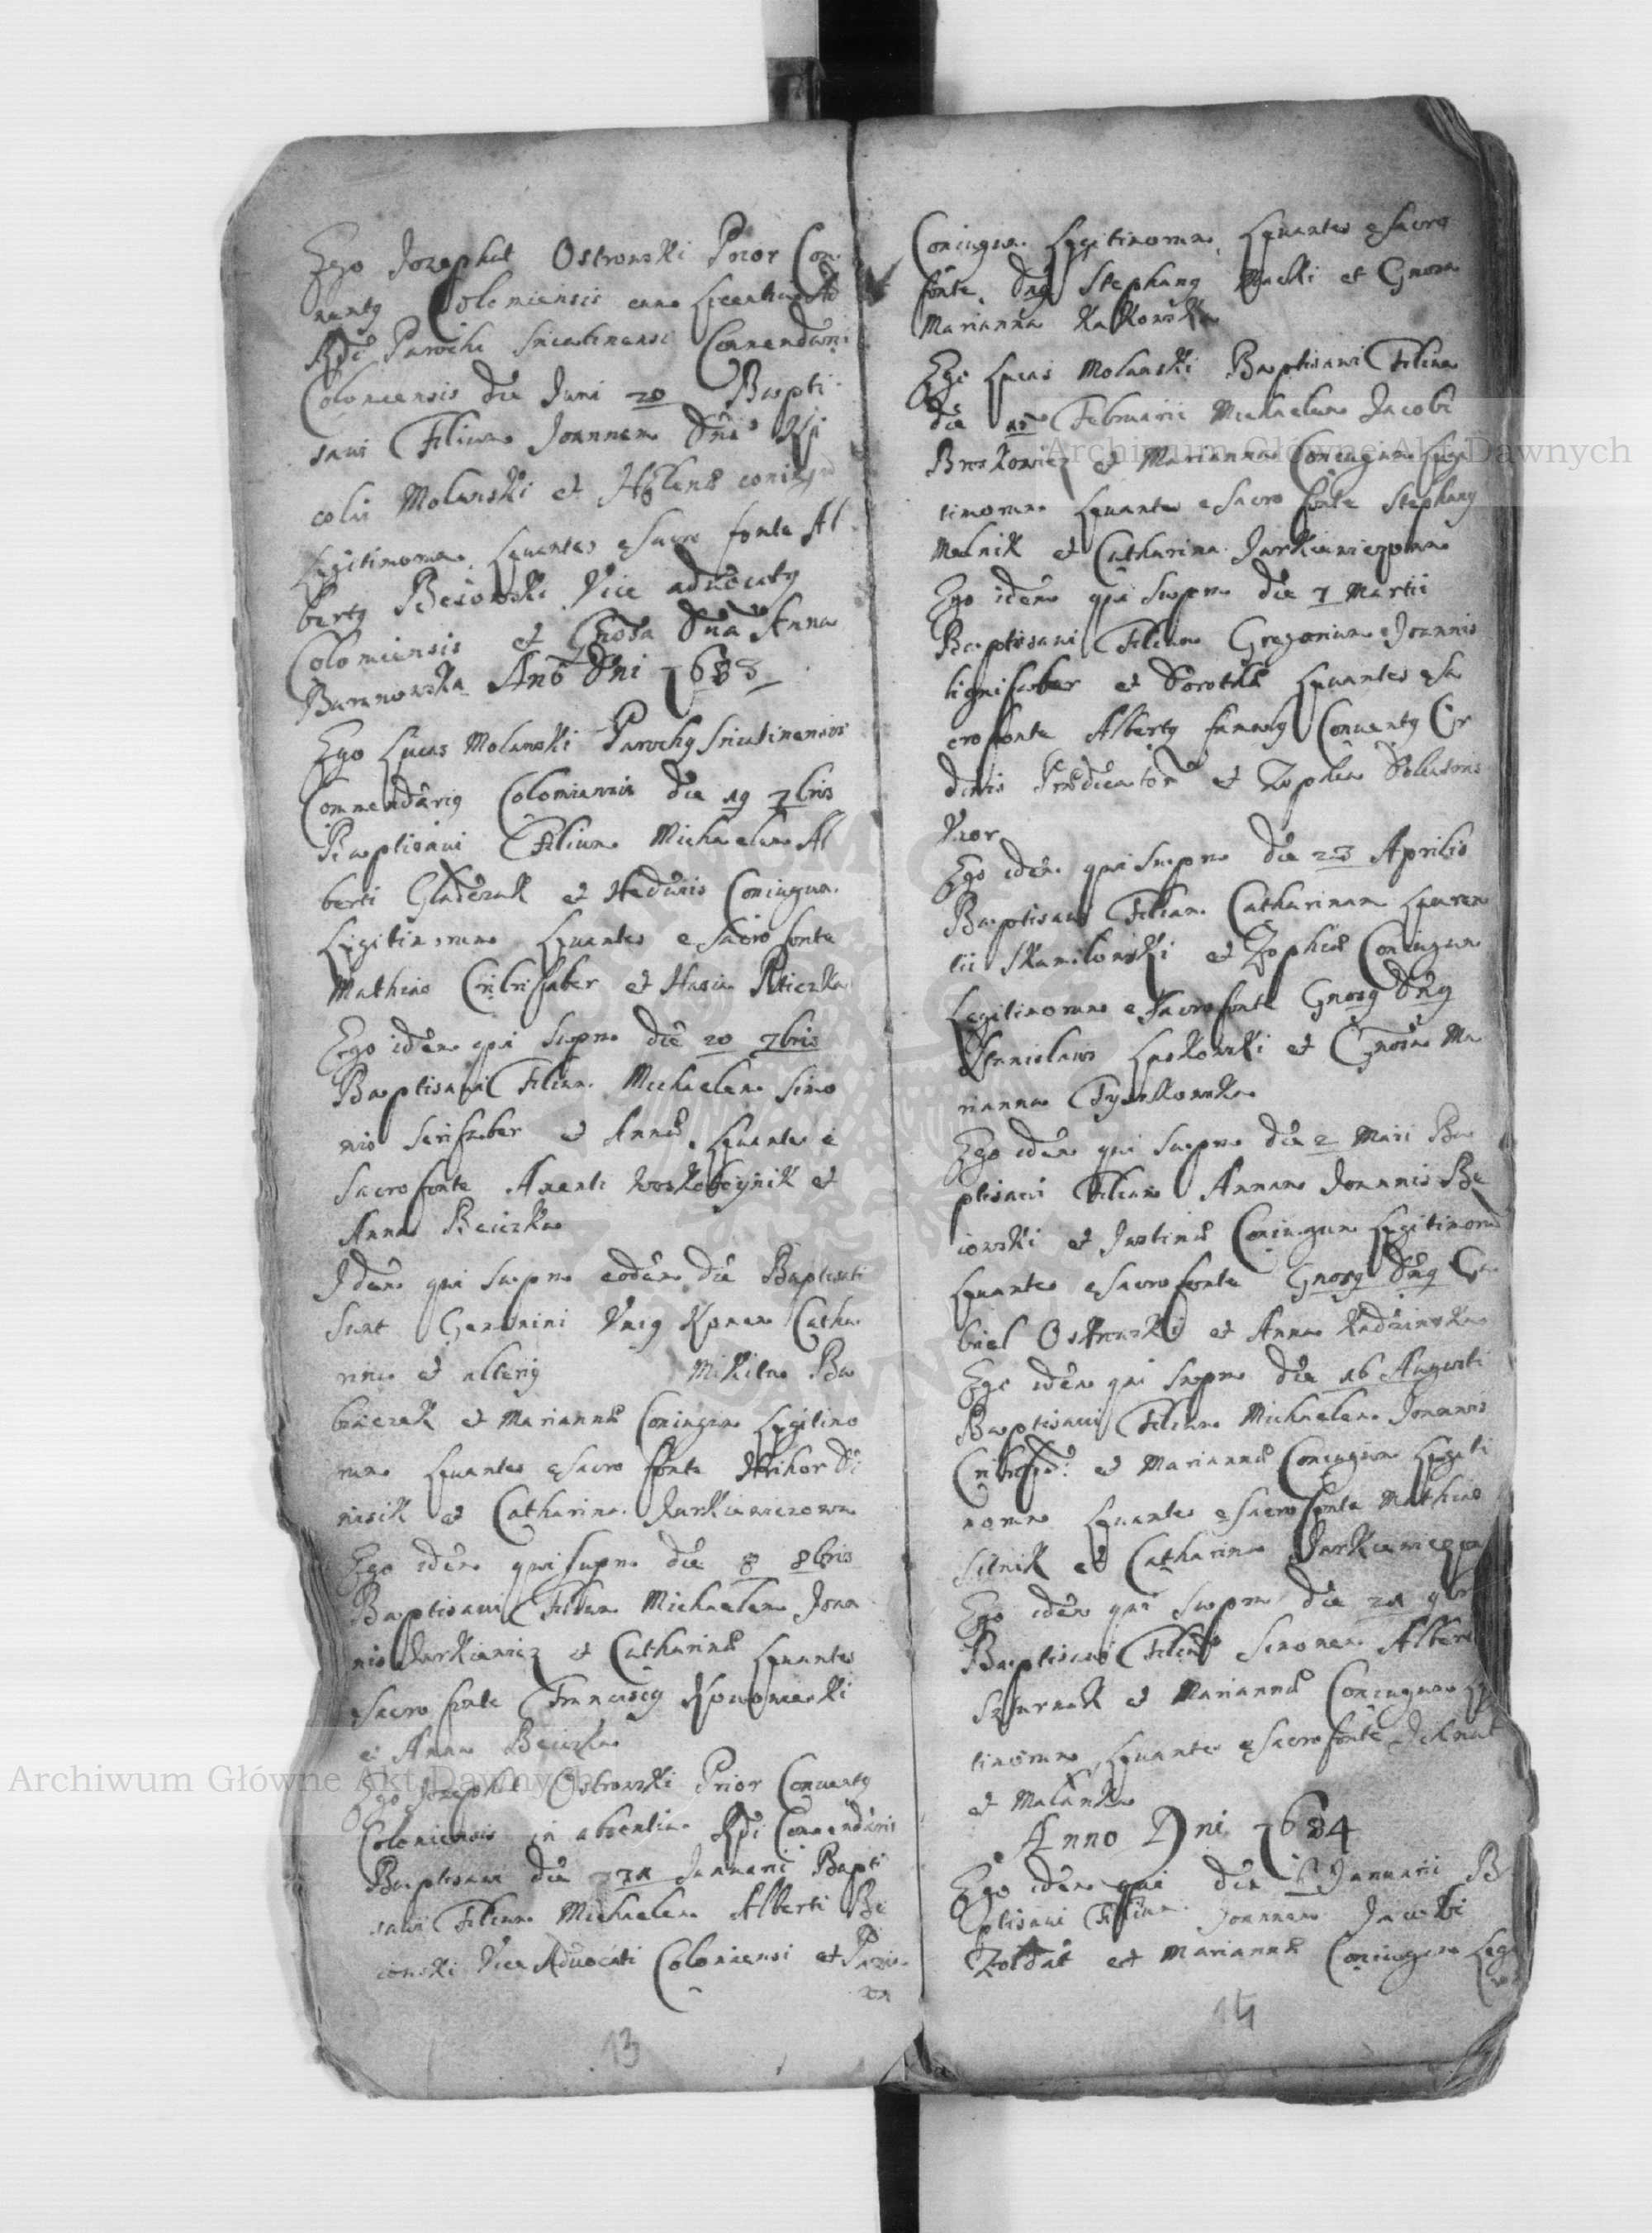 Ego Jozephat Ostrowski Prior Con
uenty Colomiensis cum Licentia Ad
Rdi Parochi Sniatinensi Commendari
Colomiensis die Juni 20 Bapti
saui Filium Joannem Dni
colai Molanski et Helenæ coniugu
Legitimorum. Leuantes e Sacro fonte Al
berty Besowski Vice aduocaty
Colomiensis et Gnosa Dna Anna
Baranowska Ano Dni 1683
Ego Lucas Molanski Parochy Sniatinensis
Commendariy Colomiensis die 19 7bris
Baptisaui Filium Michaelem Al
berti Gladczak et Heduuis Coniugum
Legitimorum Leuantes e Sacro fonte
Mathias Cribrifaber et Hasia
Ego idem qui supra die 20 7bris
Baptisaui Filium Michaelem Simo
nis Serifaber et Annæ Leuantes e
Sacro fonte Auenti Woskoboynik et
Anna Beiczka
Idem qui supra eodem die Baptisati
Sunt Gemini Vniy Catha
rina et alteriy Mikita Ba
braczak et Mariannæ Coniugum Legitimo
rum Leuantes e Sacro fonte Hrihor Di
nisik et Catharina Jurkiewiczowa
Ego idem qui supra die 8 8bris
Baptisaui Filium Michaelem Jona
nis Jurkiewicz et Catharinæ Leuantes
e Sacro fonte Franciscy
et Anna Beiczka
Ego Jozephat Ostrowski Prior Conuenty
Colomiensis in absentia Rdi Commendaris
Baptisaui die Januarii Bapti
saui Filium Michaelem Alberti Be
iowski Vice Aduocati Colomiensi et
13
Coniugum Legitimorum Leuantes e Sacro
fonte Dny Stephany et Gnosa
Marianna Kalkowska
Ego Lucas Molanski Baptisaui Filium
die 15 Februarii Michaelem Jacobi
Broskowicz et Marianna Coniugum Legi
timorum Leuantes e Sacro fonte Stephany
Melnik et Catharina Jurkiewiczowa
Ego idem qui supra die 7 Martii
Baptisaui Filium Gregorium Joannis
lignifaber et Dorothæ Leuantes e Sa
cro fonte Alberty famuly Conuenty Or
dinis Prædicator et Zophia
Vxor
Ego idem qui supra die 23 Aprilis
Baptisaui Filiam Catharinam Lauren
tii et Zophiæ Coniugum
Legitimorum e Sacro fonte Gnosy Dny
Stanislaws Laskowski et Gnosa Ma
rianna
Ego idem qui supra die 2 Maii Ba
ptisaui Filiam Annam Joannis Be
iowski et Justinæ Coniugum Legitimoru
Leuantes e Sacro fonte Gnosy Dny Ga
briel Ostrowski et Anna
Ego idem qui supra die 16 Augusti
Baptisaui Filium Michaelem Joannis
Cribrifa: et Mariannæ Coniugum Legiti
morum Leuantes e Sacro fonte Mathias
Sitnik et Catharina Jurkiewiczowa
Ego idem qui supra die 21 9br
Baptisaui Filium Simonem Alberti
et Mariannæ Coniugum Le
timorum Leuantes e Sacro fonte
et Malanka
Anno Dni 1684
Ego idem qui die Januarii B
ptisaui Filium Joannem Jacobi
Zoldat et Mariannæ Coniugum Legi
14
Archiwum Główne Akt Dawnych
Archiwum Główne Akt Dawnych